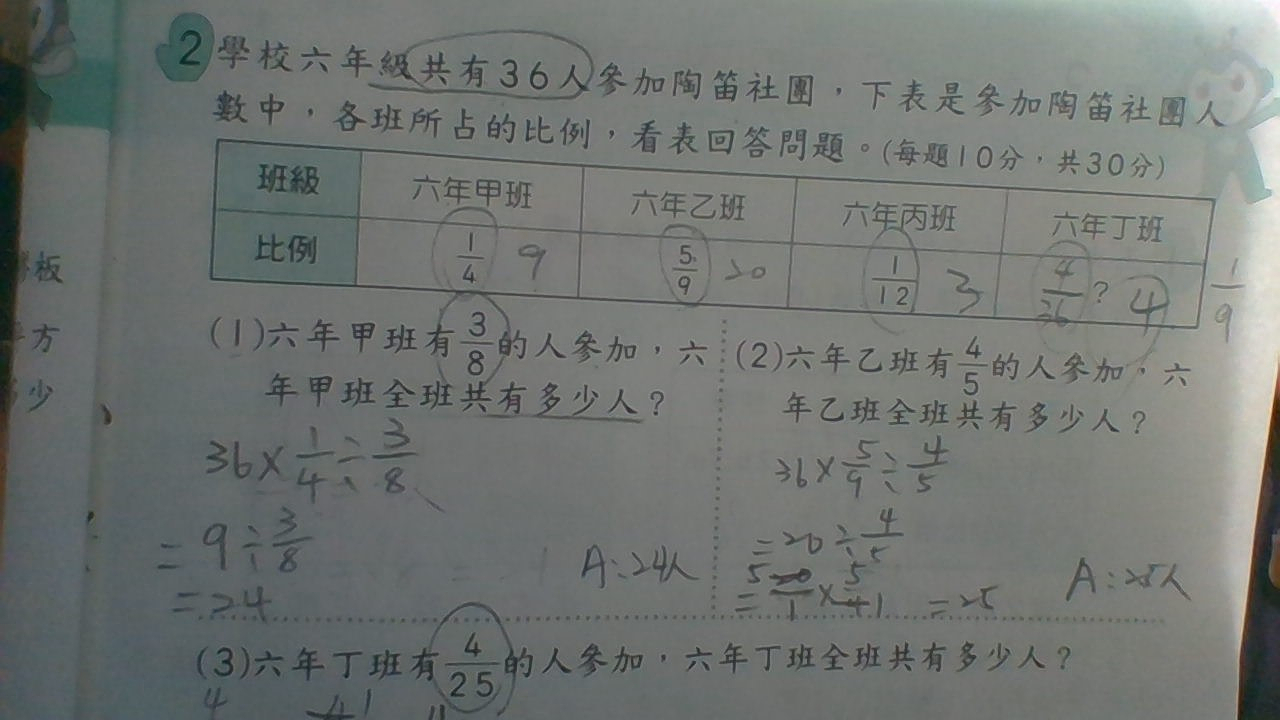 2 學校六年級共有36人參加陶笛社團，下表是參加陶笛社團人
數中，各班所占的比例，看表回答問題。(每題10分，共30分)
班級 六年甲班 六年乙班 六年丙班 六年丁班
比例 1/4 9 5/9 20 1/12 3 4/36 ? 4 1/9
(1)六年甲班有3/8的人參加，六
年甲班全班共有多少人？
36×1/4÷3/8
=9÷3/8
=24
A:24人
(2)六年乙班有4/5的人參加，六
年乙班全班共有多少人？
36×5/9÷4/5
=20÷4/5
5 5
=20/1×5/4 1 =25
A:25人
(3)六年丁班有4/25的人參加，六年丁班全班共有多少人？
板
方
少